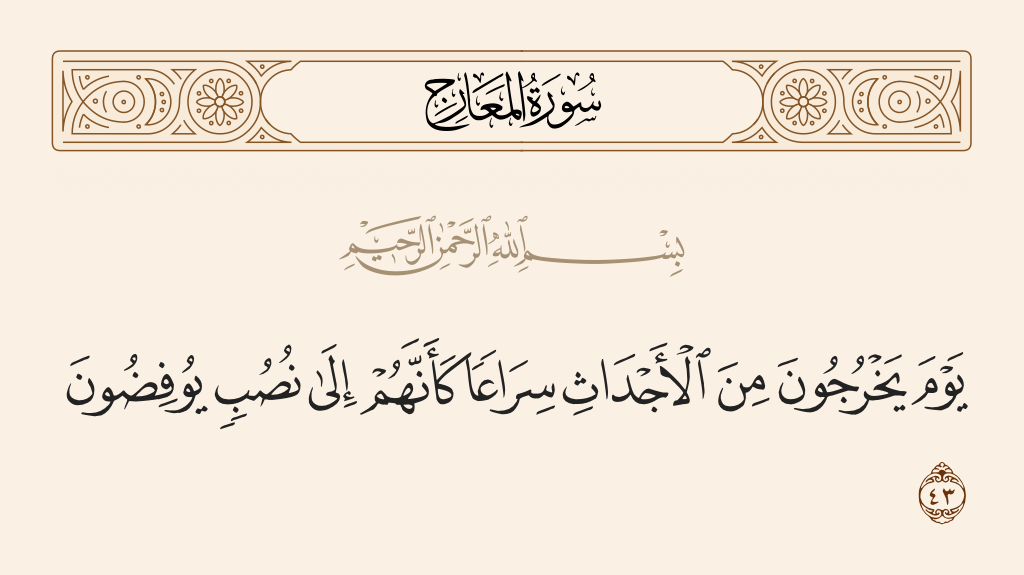 سُورَةُ المَعَارِج
بِسْمِ ٱللَّهِ ٱلرَّحْمَٰنِ ٱلرَّحِيمِ
يَوْمَ يَخْرُجُونَ مِنَ ٱلْأَجْدَاثِ سِرَاعًا كَأَنَّهُمْ إِلَىٰ نُصُبٍ يُوفِضُونَ
٤٣